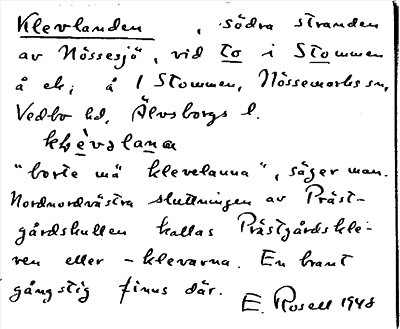 Klevlanden, södra stranden
av Nössesjö, vid to i Stommen
å ek; å 1 Stommen, Nössemarks sn,
Vedbo hd, Älvsborgs l.
"borte mä klevelanna", säger man.
Nordnordvästra sluttningen av Präst-
gårdskullen kallas Prästgårdskle-
ven eller -klevarna. En brant
gångstig finns där.
E. Rosell 1948